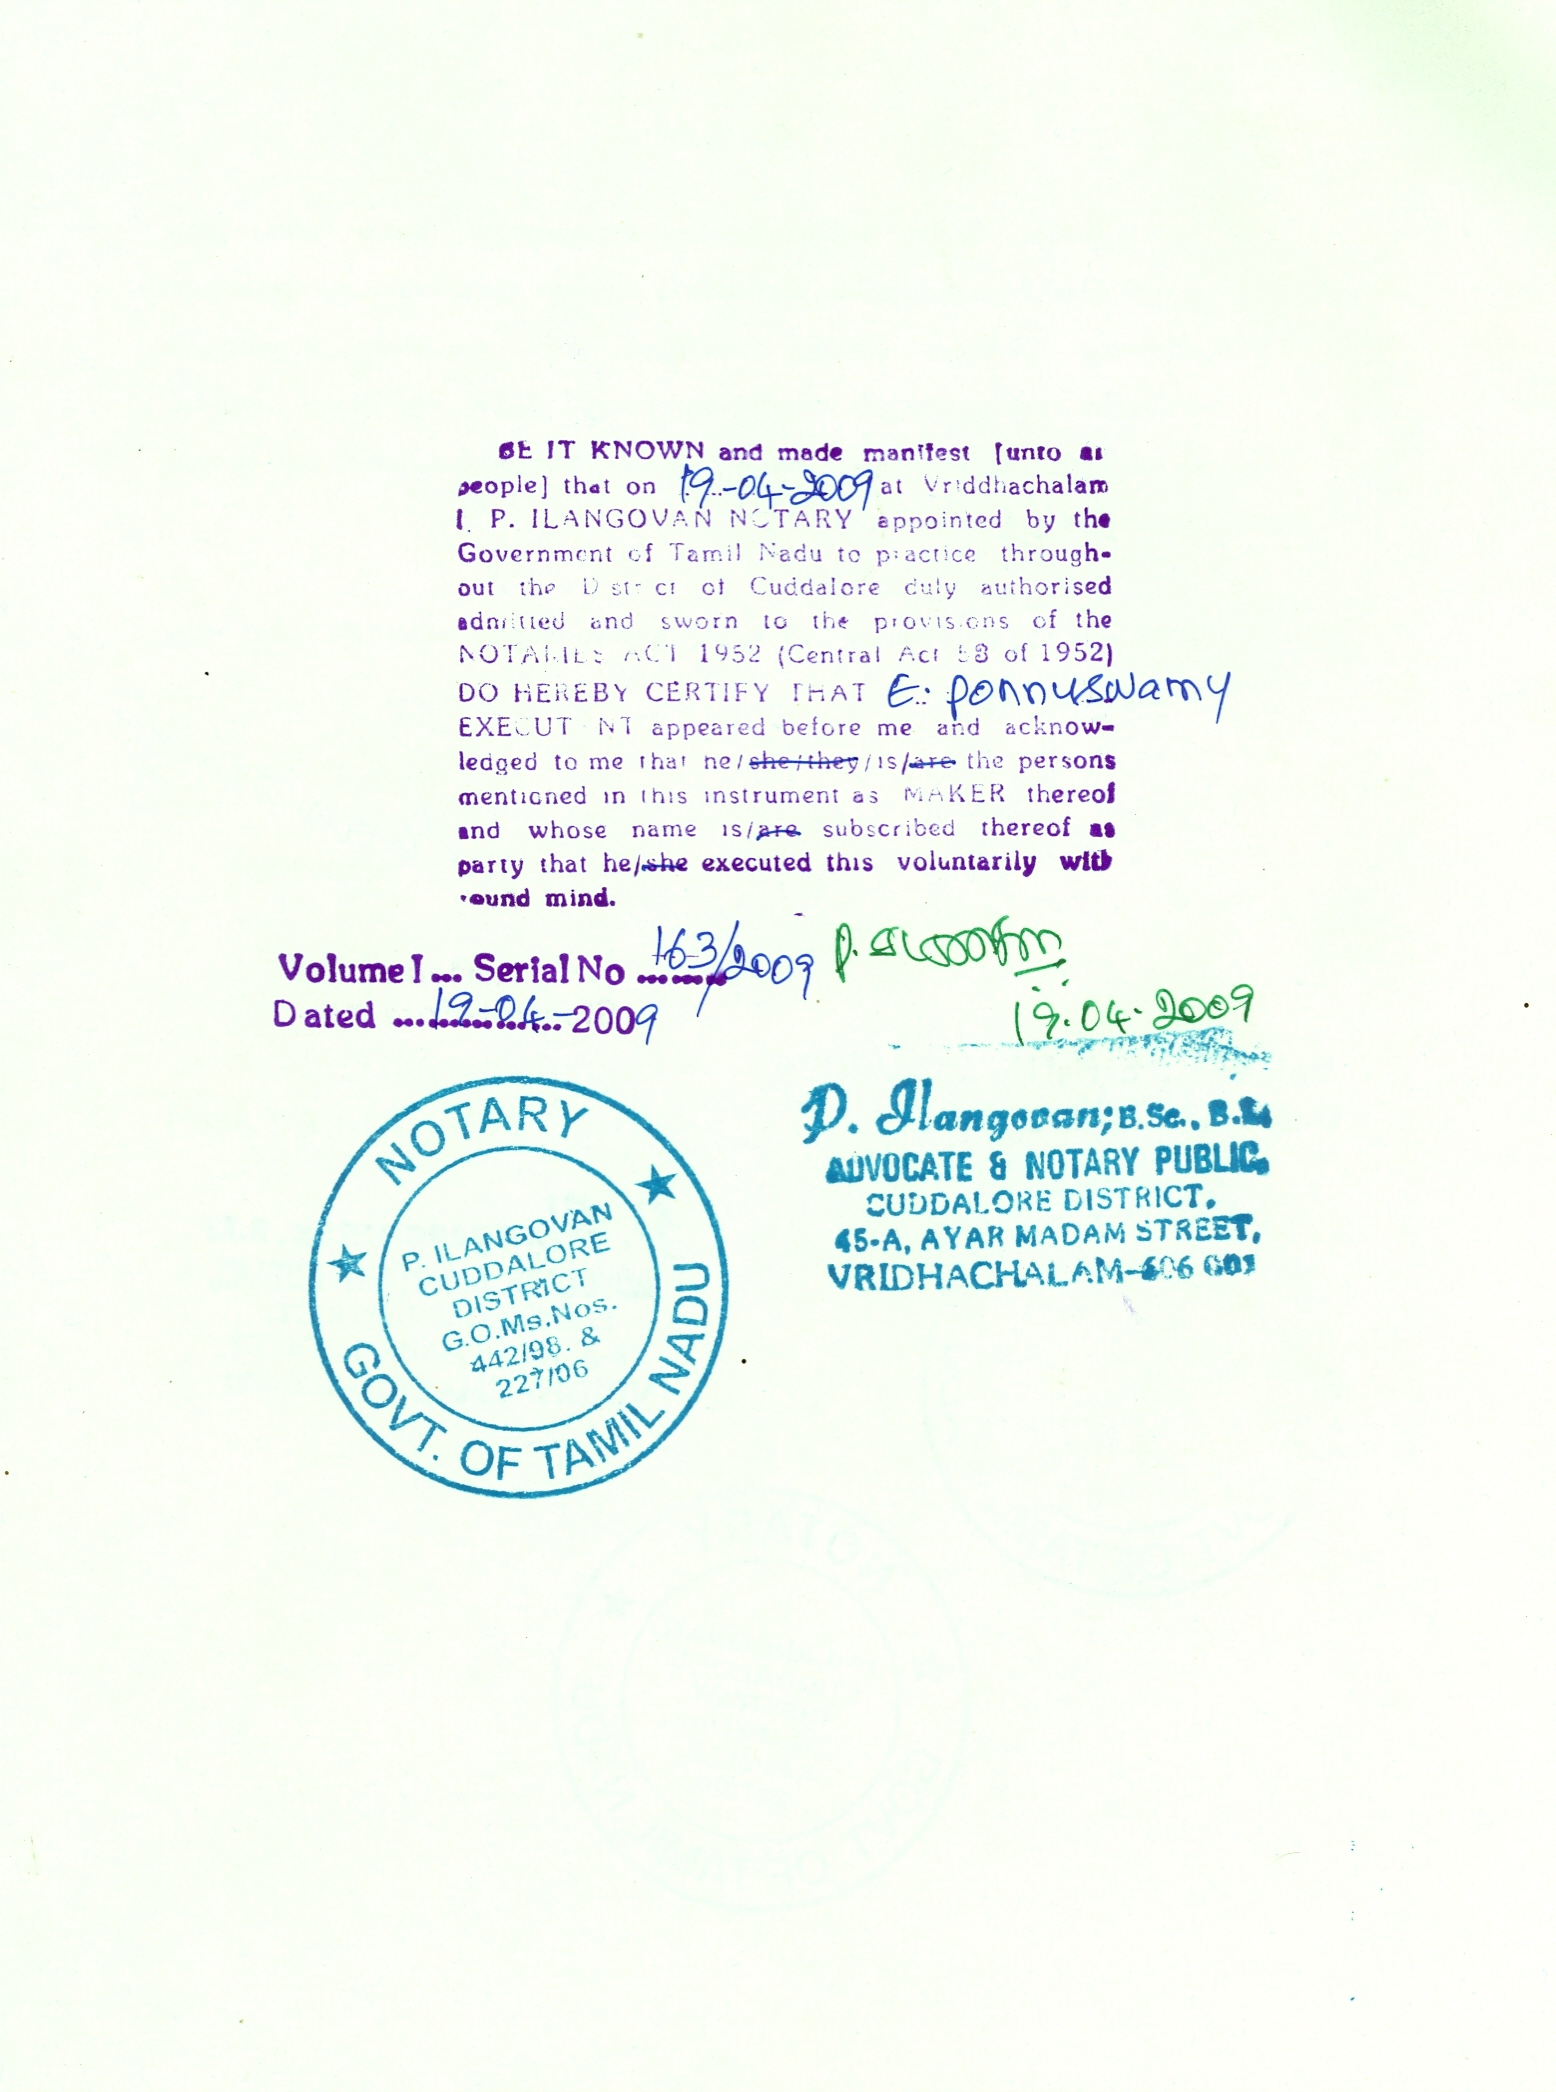 BE IT KNOWN and made manifest [unto as
people] that on 19-04-2009 at Vriddhachalam
I. P. ILANGOVAN NOTARY appointed by the
Government of Tamil Nadu to practice through-
out the District of Cuddalore duly authorised
admitted and sworn to the provisions of the
NOTARIES ACT 1952 (Central Act 53 of 1952)
DO HEREBY CERTIFY THAT E. Ponnuswamy
EXECUTANT appeared before me and acknow-
ledged to me that he/she/they/is/are the persons
mentioned in this instrument as MAKER thereof
and whose name is/are subscribed thereof as
party that he/she executed this voluntarily with
sound mind.
Volume I... Serial No ....... 163/2009
Dated ....19-04-2009
19.04.2009
NOTARY
GOVT. OF TAMIL NADU
P. ILANGOVAN
CUDDALORE
DISTRICT
G.O.Ms.Nos.
442/98. &
227/06
P. Ilangovan; B.Sc., B.L.
ADVOCATE & NOTARY PUBLIC,
CUDDALORE DISTRICT,
45-A, AYAR MADAM STREET,
VRIDHACHALAM-606 001